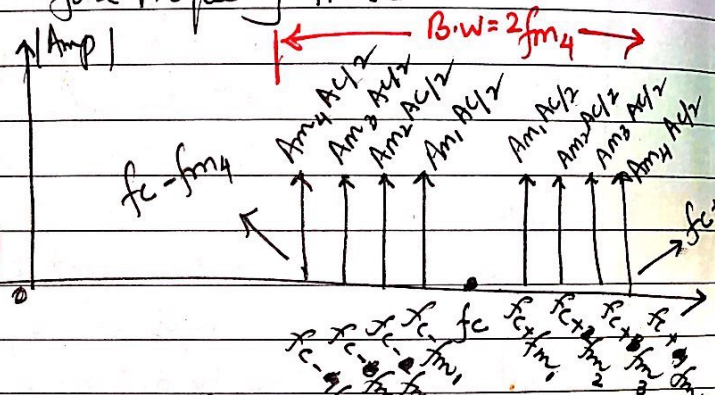 |Amp|
B.W=2fm4
Am4 Ac/2 Am3 Ac/2 Am2 Ac/2 Am1 Ac/2 Am1 Ac/2 Am2 Ac/2 Am3 Ac/2 Am4 Ac/2
fc-fm4
fc+
0
fc- fc- fc- fc-fm1 fc fc+fm1 fc+fm2 fc+fm3 fc+fm